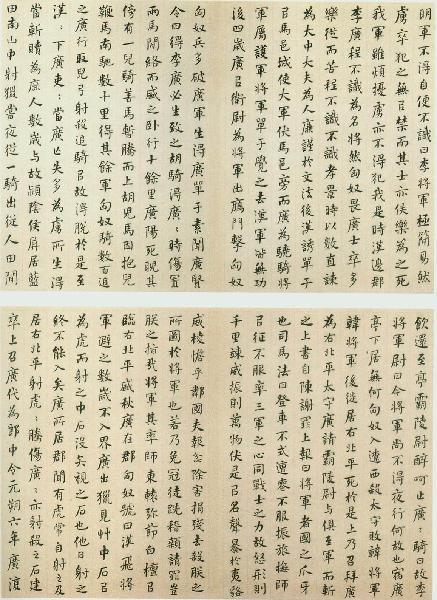 明軍不得自便不識曰李將軍極簡易然
虜卒犯之無以禁而其士亦佚樂為之死
我軍雖煩擾虜亦不得犯我是時漢邊郡
李廣程不識為名將然匈奴畏廣士卒多
樂從而苦程不識〻〻孝景時以數直諫
為大中大夫為人廉謹於文法後漢誘單于
以馬邑城使大軍伏馬邑旁而廣為驍騎將
軍屬護軍將軍單于覺之去漢軍皆無功
後四歲廣以衛尉為將軍出鴈門擊匈奴
匈奴兵多破廣軍生得廣單于素聞廣賢
令曰得李廣必生致之胡騎得廣〻時傷置
兩馬間絡而盛之臥行十餘里廣陽死睨其
傍有一兒騎善馬暫騰而上胡兒馬因抱兒
鞭馬南馳數十里得其餘軍匈奴騎數百追
之廣行取兒弓射殺追騎以故得脫於是至
漢〻下廣吏〻當廣亡失多為虜所生得
當斬贖為庶人數歲與故潁陰侯屏居藍
田南山中射獵嘗夜從一騎出從人田間
飲還至亭霸陵尉醉呵止廣〻騎曰故李
將軍尉曰今將軍尚不得夜行何故也宿廣
亭下居無何匈奴入遼西殺太守敗韓將軍
韓將軍後徙居右北平死於是上乃召拜廣
為右北平太守廣請霸陵尉與俱至軍而斬
之上書自陳謝罪上報曰將軍者國之爪牙
也司馬法曰登車不式遭喪不服振旅撫師
以征不服率三軍之心同戰士之力故怒形則
千里竦威振則萬物伏是以名聲暴於夷貉
威棱憺乎鄰國夫報忿除害捐殘去殺朕之
所圖於將軍也若乃免冠徒跣稽顙請罪豈
朕之指哉將軍其率師東轅彌節白檀以
臨右北平盛秋廣在郡匈奴號曰漢飛將
軍避之數歲不入界廣出獵見艸中石以
為虎而射之中石沒矢視之石也他日射之
終不能入矣廣所居郡聞有虎常自射之及
居右北平射虎〻騰傷廣〻亦射殺之石建
卒上召廣代為郎中令元朔六年廣復